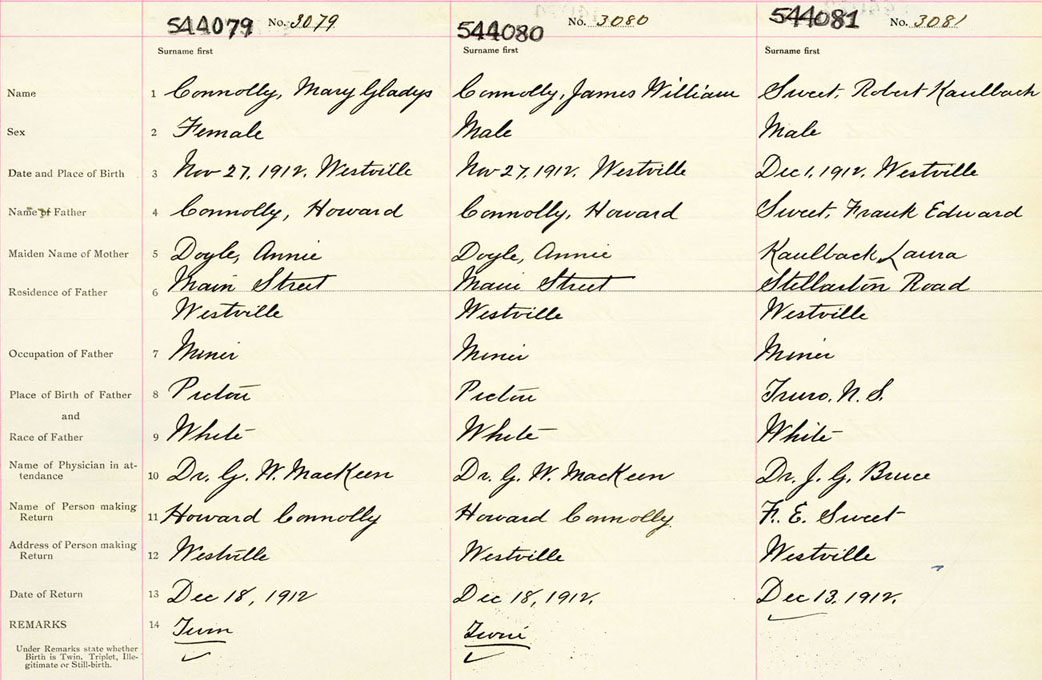 544079 No. 3079 544080 No. 3080 544081 No. 3081
Surname first Surname first Surname first
Name 1 Connolly, Mary Gladys Connolly, James William Sweet, Robert Kaulback
Sex 2 Female Male Male
Date and Place of Birth 3 Nov 27, 1912. Westville Nov 27, 1912. Westville Dec 1, 1912. Westville
Name of Father 4 Connolly, Howard Connolly, Howard Sweet, Frank Edward
Maiden Name of Mother 5 Doyle, Annie Doyle, Annie Kaulback, Laura
Residence of Father 6 Main Street Main Street Stellarton Road
Westville Westville Westville
Occupation of Father 7 Miner Miner Miner
Place of Birth of Father 8 Pictou Pictou Truro, N. S.
and
Race of Father 9 White White White
Name of Physician in at-
tendance 10 Dr. G. W. MacKeen Dr. G. W. MacKeen Dr. J. G. Bruce
Name of Person making
Return 11 Howard Connolly Howard Connolly F. E. Sweet
Address of Person making
Return 12 Westville Westville Westville
Date of Return 13 Dec 18, 1912 Dec 18, 1912. Dec 13, 1912.
REMARKS 14 Twin Twin
Under Remarks state whether
Birth is Twin, Triplet, Ille-
gitimate or Still-birth.